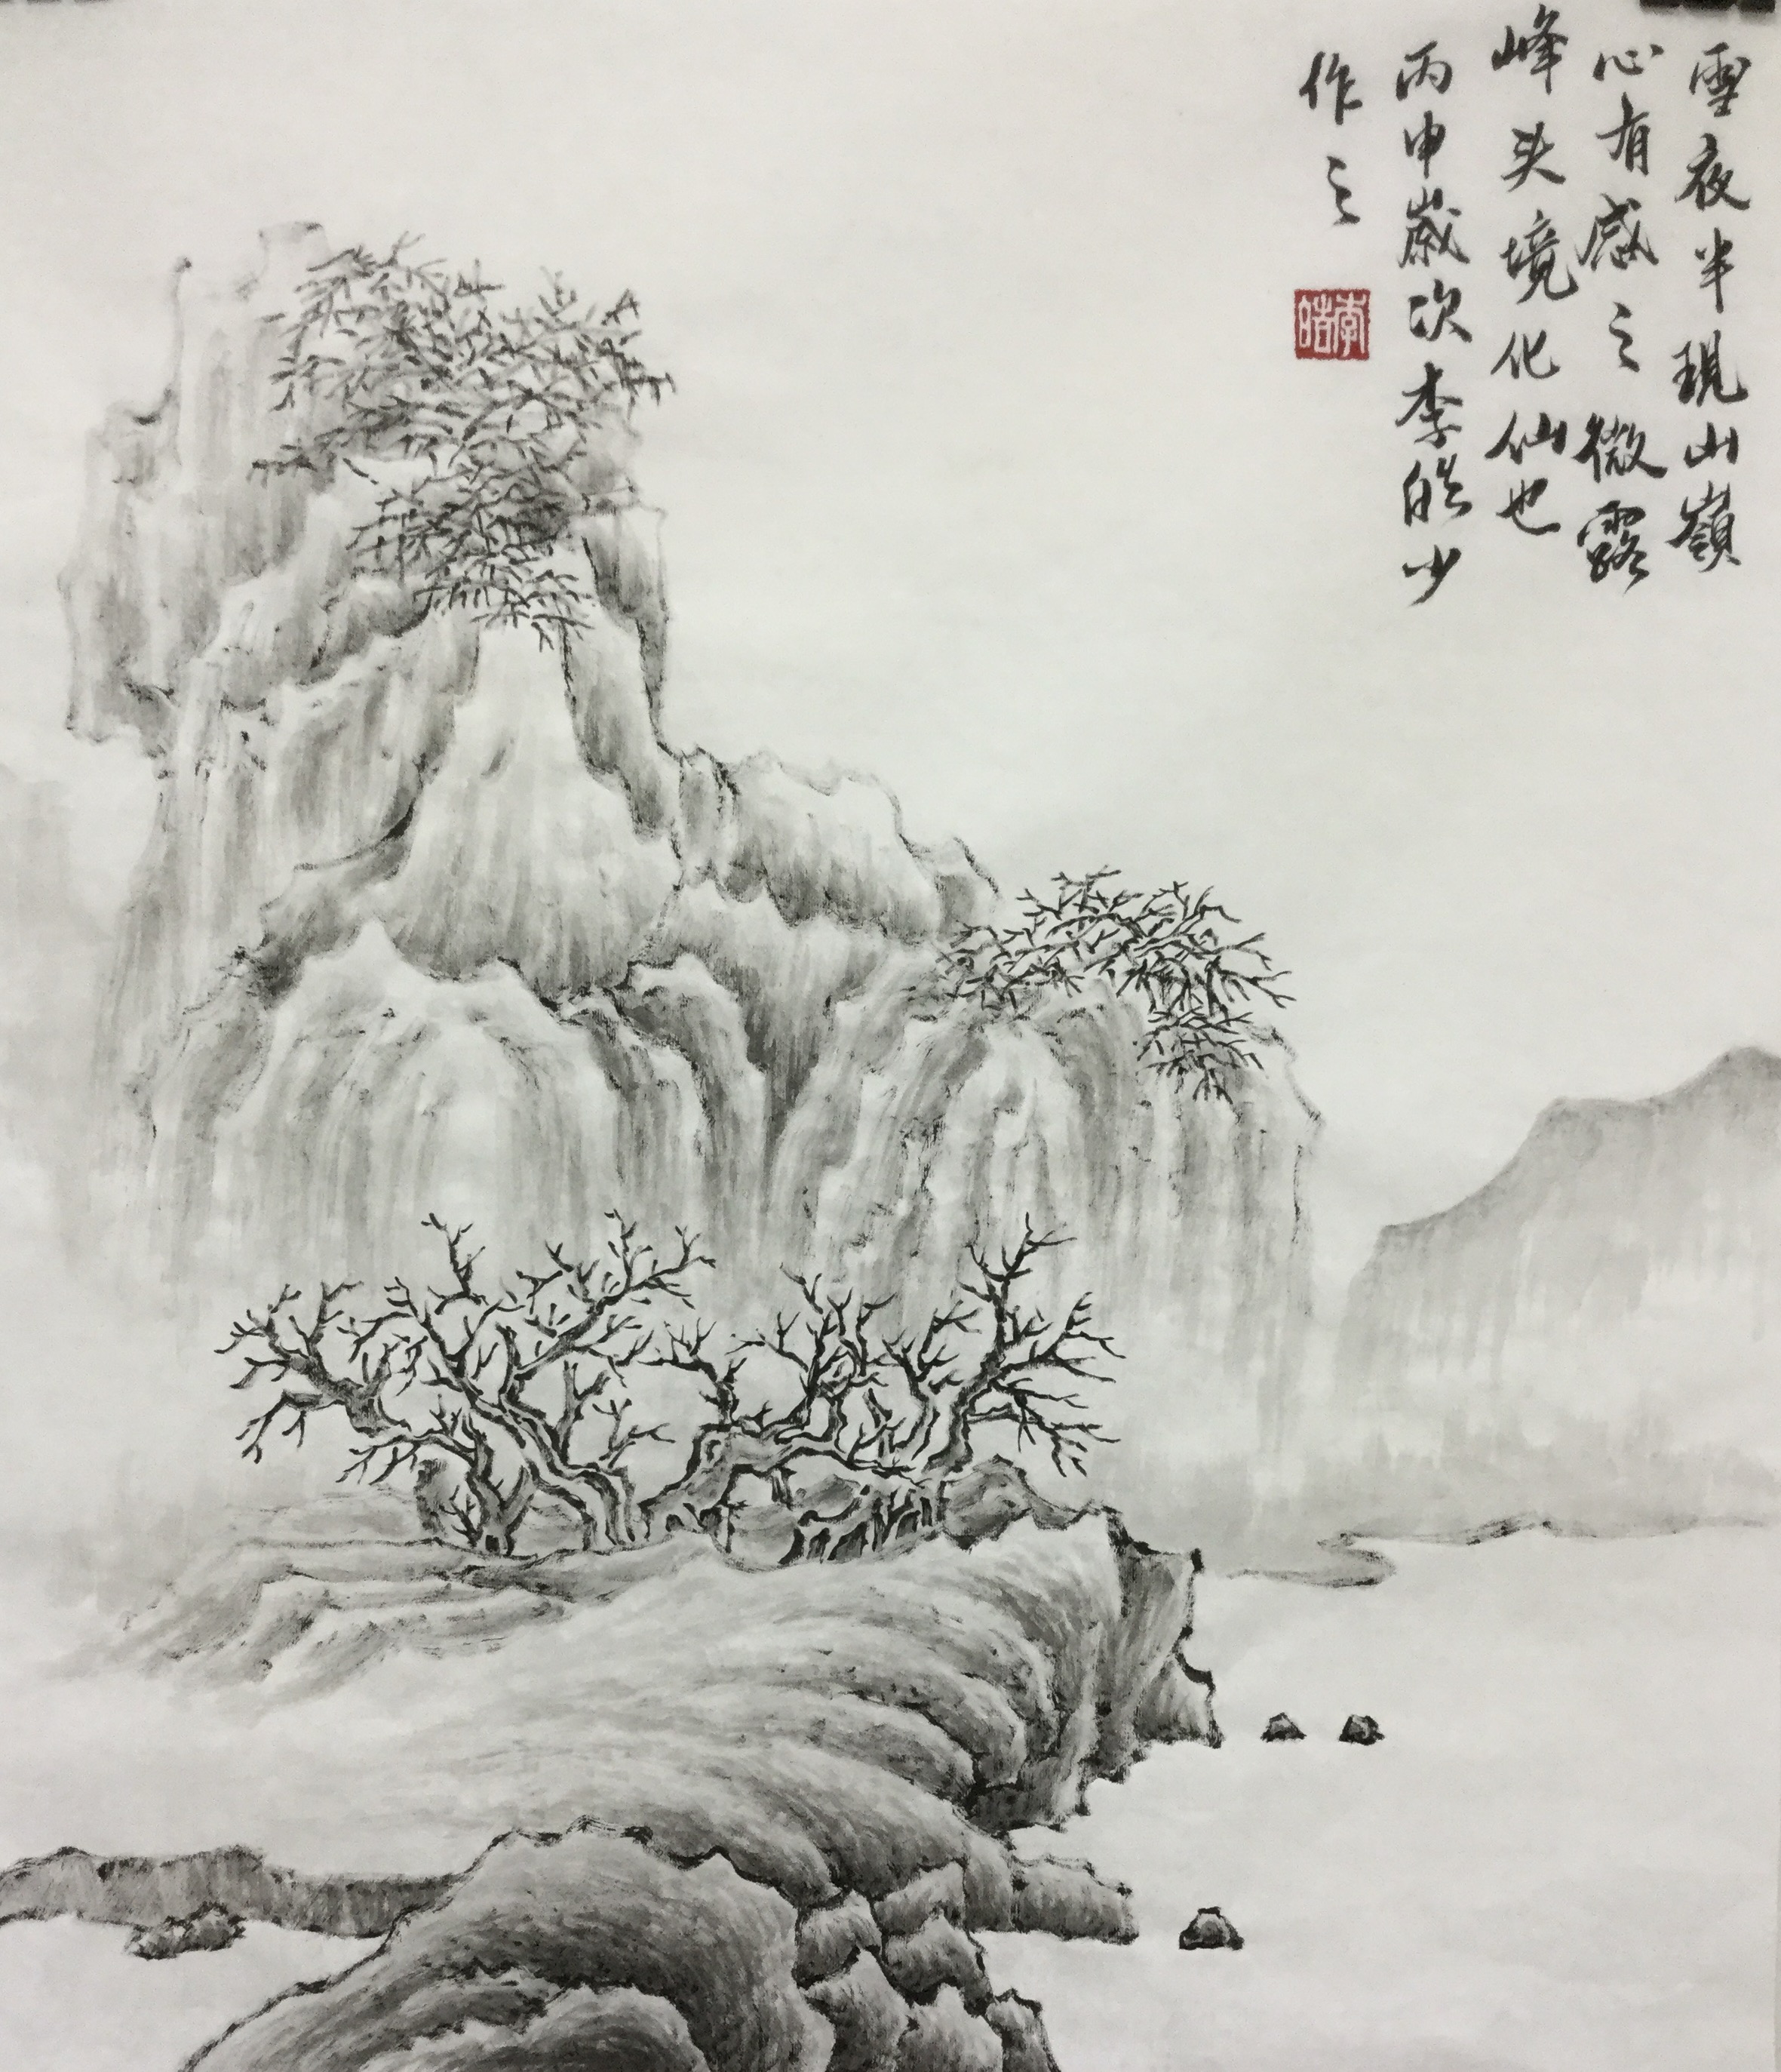 雪夜半現山嶺
心有感之微露
峰头境化仙也
丙申歲次李皓少
作之
李皓